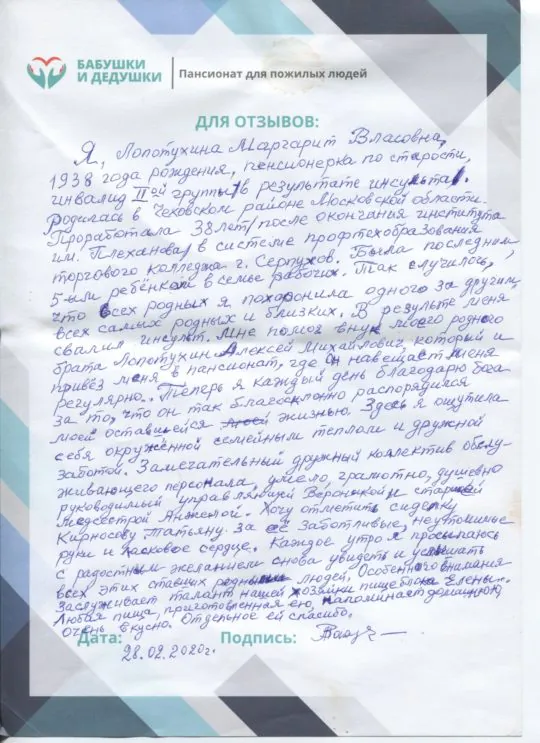 БАБУШКИ
И ДЕДУШКИ
Пансионат для пожилых людей
ДЛЯ ОТЗЫВОВ:
Я, Лопотухина Маргарит Власовна,
1938 года рождения, пенсионерка по старости,
инвалид IIой группы/в результате инсульта/.
Родилась в Чеховском районе Московской области.
Проработала 38 лет/после окончания института
им. Плеханова/ в системе профтехобразования
торгового колледжа г. Серпухов. Была последним,
5-ым ребёнком в семье рабочих. Так случилось,
что всех родных я похоронила одного за другим,
всех самых родных и близких. В результе меня
свалил инсульт. Мне помог внук моего родного
брата Лопотухин Алексей Михайлович, который и
привёз меня в пансионат, где он навещает меня
регулярно. Теперь я каждый день благодарю бога
за то, что он так благосклонно распорядился
моей оставшейся моей жизнью. Здесь я ощутила
себя окружённой семейным теплом и дружной
заботой. Замечательный дружный коллектив обслу-
живающего персонала, умело, грамотно, душевно
руководимый управляющей Вероникой и старшей
медсестрой Анжелой. Хочу отметить сиделку
Кирносову Татьяну за её заботливые, неутомимые
руки и ласковое сердце. Каждое утро я просыпаюсь
с радостным желанием снова увидеть и услышать
всех этих ставших родными людей. Особенного внимания
заслуживает талант нашей хозяйки пищеблока Елены.
Любая пища, приготовленная ею, напоминает домашнюю,
очень вкусно. Отдельное ей спасибо.
Дата: Подпись:
28.02.2020г.